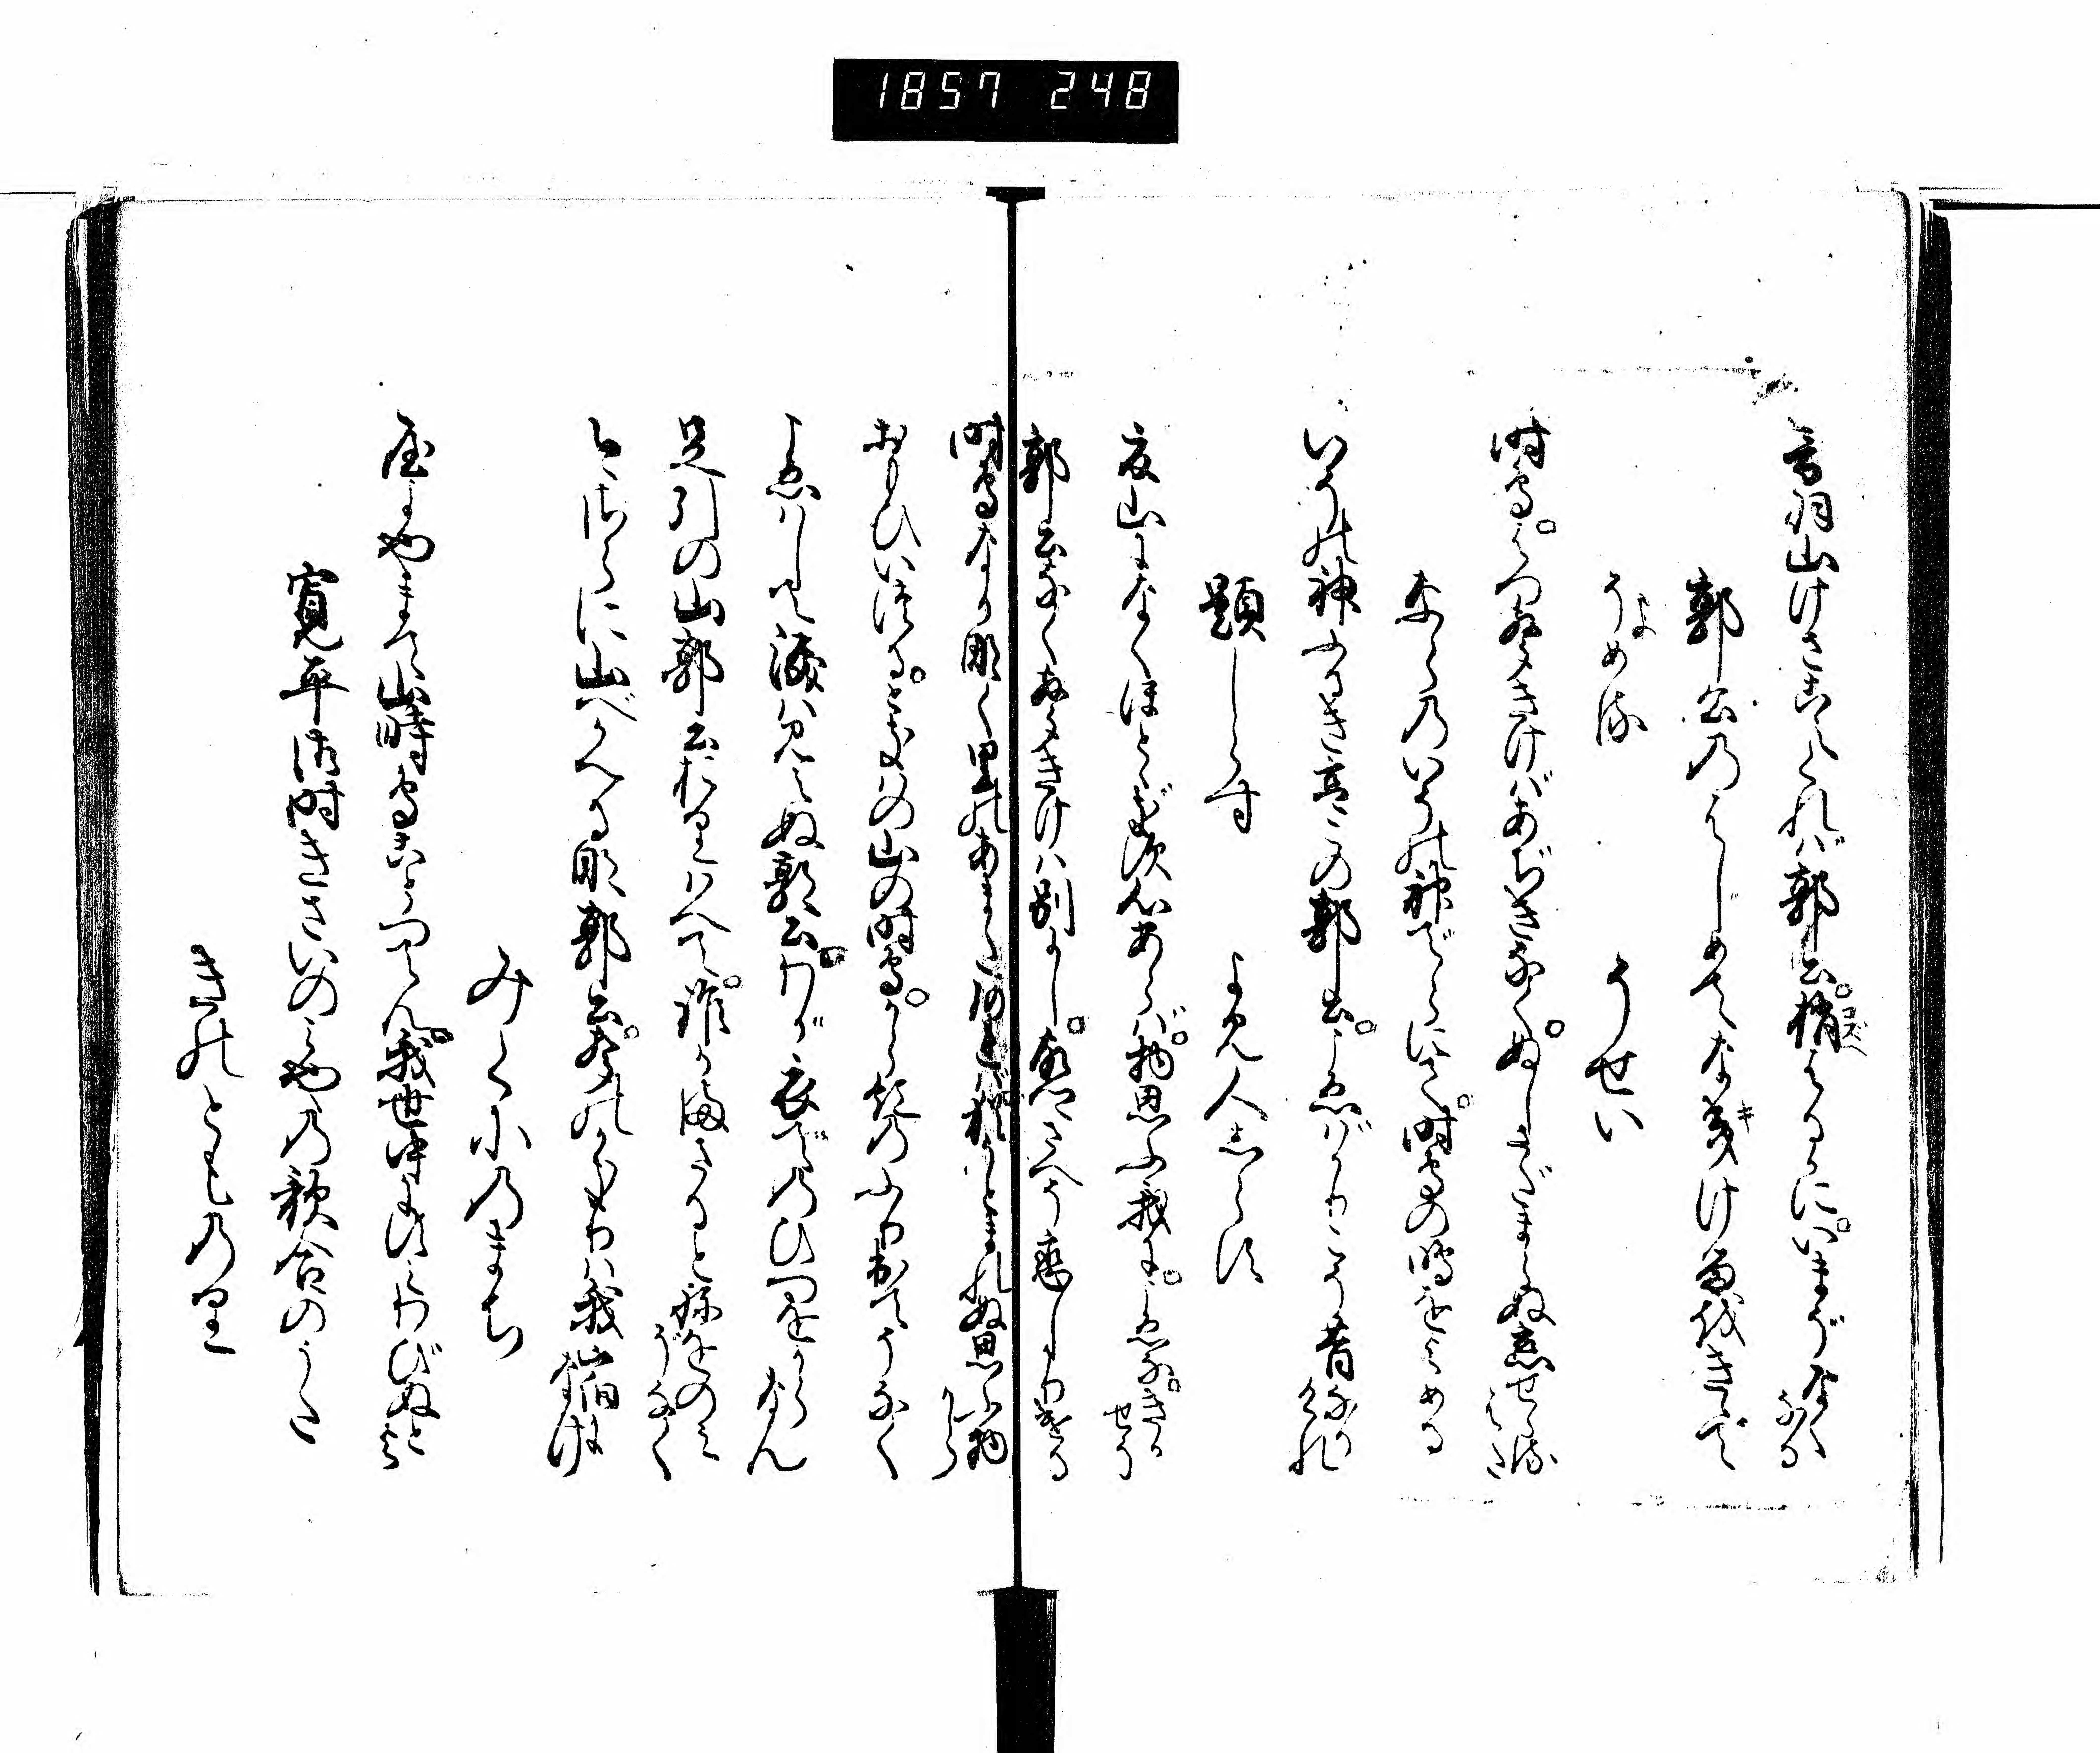 1857 248
音羽山けさこえくれば郭公梢コズヱはるかにいまぞなくなる
郭公のはじめてなキけるをきゝて
よめる
そせい
時鳥はつ聲きけばあぢきなくぬしさだまらぬ恋せらるはた
ならのいその神でらにて時鳥の鳴をよめる
いその神ふるき都の郭公こゑばかりこそ昔なりけれ
題しらず
よみ人しらず
夏山になくほとゝぎす心あらば物思ふ我に聲なきかせそ
郭公なく聲きけは別にし故さとさへぞ恋しかりける
時鳥なか鳴く里のあまたあれば猶うとまれぬ思ふ物から
おもひいづるときはの山の時鳥から紅のふり出てぞなく
こゑはして涙は見えぬ郭公わが衣でのひつをからなん
足引の山郭公おりはへて誰かまさるとねをのみぞなく
今さらに山へかへるな郭公聲のかぎりは我宿になけ
みくにのまち
やよやまて山時鳥ことつてん我世中にすみわびぬとよ
寛平御時きさいのみやの歌合のうた
きのとものり